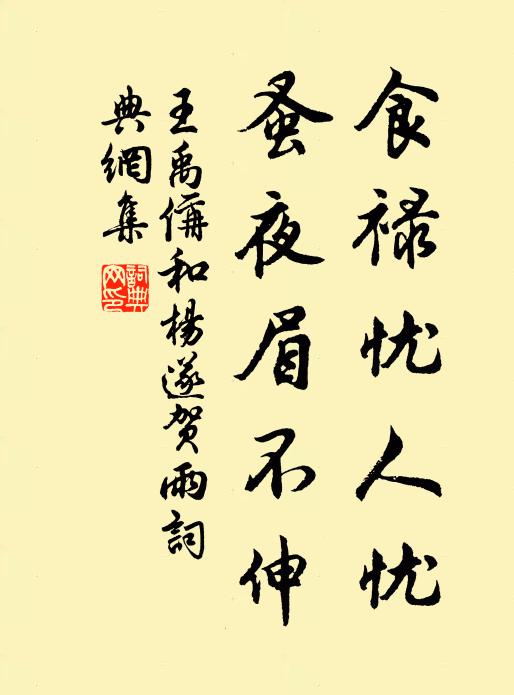 食禄忧人忧
蚤夜眉不伸
王禹偁和楊遂贺雨詞
典網集
詞典
网印